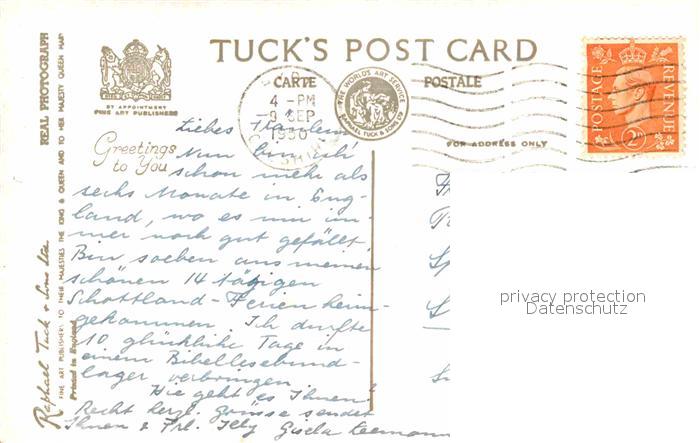 TUCK'S POST CARD
CARTE POSTALE
THE WORLD'S ART SERVICE
RAPHAEL TUCK & SONS LTD
BY APPOINTMENT
FINE ART PUBLISHERS
FOR ADDRESS ONLY
POSTAGE REVENUE
2D
4 - PM
9 SEP
1950
REAL PHOTOGRAPH
Raphael Tuck & Sons Ltd.
FINE ART PUBLISHERS TO THEIR MAJESTIES THE KING & QUEEN AND TO HER MAJESTY QUEEN MARY
Printed in England
Greetings
to You
Liebes
Nun bin ich
schon mehr als
sechs Monate in Eng-
land, wo es mir im-
mer noch gut gefällt.
Bin soeben aus meinen
schönen 14 tägigen
Schottland-Ferien heim-
gekommen. Ich durfte
10 glückliche Tage in
einem Bibellesebund-
lager verbringen.
Wie geht es Ihnen?
Recht herzl. Grüsse sendet
Ihnen & Frl. Gisela
privacy protection
Datenschutz